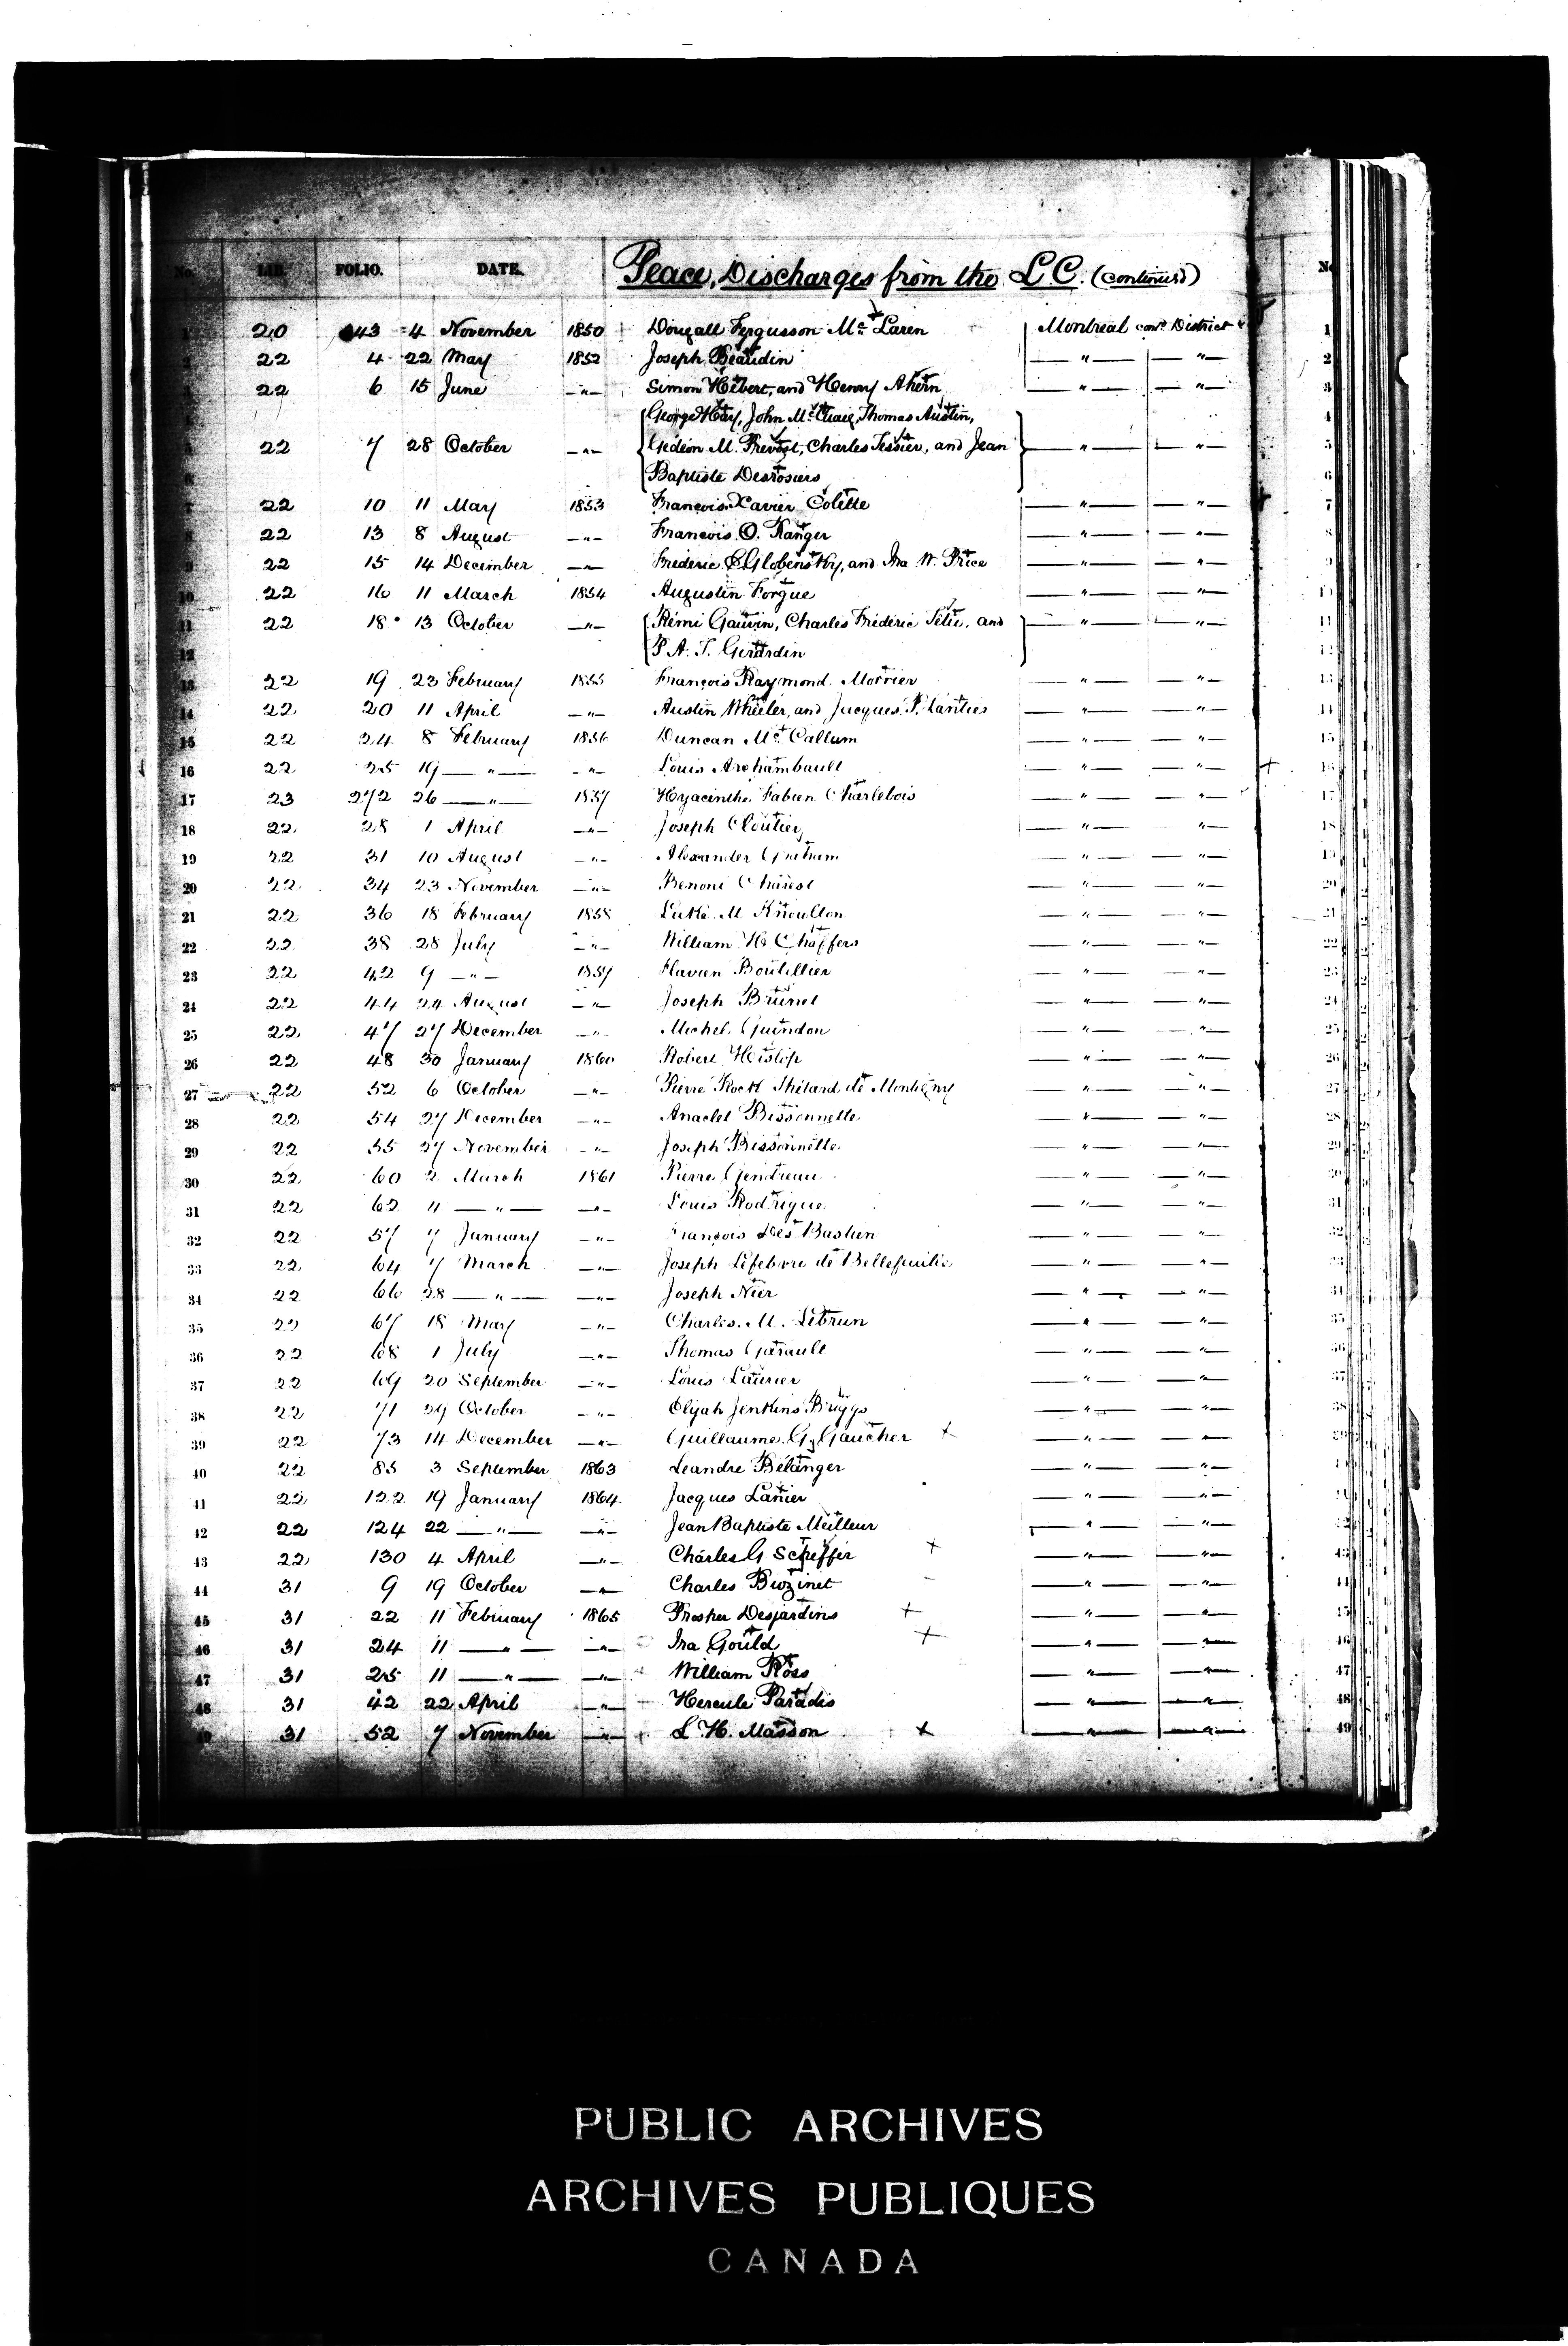 No. LIB. FOLIO. DATE. Peace, Discharges from the L.C. (continued) No
1 20 43 4 November 1850 Dougall Fergusson Mc Laren Montreal com. District 1
22 4 22 May 1852 Joseph Beaudin — " — — " — 2
22 6 15 June — " — Simon Hébert, and Henry Ahern — " — — " — 3
George Hay, John Mc Thomas Austin, 4
22 7 28 October — " — Gédéon M. Prevost, Charles Tessier, and Jean — " — — " — 5
Baptiste Desrosiers 6
7 22 10 11 May 1853 François Xavier Colette — " — — " — 7
8 22 13 8 August — " — François O. Ranger — " — — " — 8
9 22 15 14 December — " — Frédéric E. Globensky, and Ira W. Price — " — — " — 9
10 22 16 11 March 1854 Augustin Forgue — " — — " —
11 22 18 13 October — " — Rémi Gauvin, Charles Frédéric Têtu, and — " — — " — 11
12 P. A. T. Girardin 12
13 22 19 23 February 1855 François Raymond Morrier — " — — " — 13
14 22 20 11 April — " — Austin Wheeler, and Jacques P. Lantier — " — — " — 14
15 22 24 8 February 1856 Duncan Mc Callum — " — — " — 15
16 22 25 19 — " — — " — Louis Archambault — " — — " — + 16
17 23 272 26 — " — 1857 Hyacinthe Fabien Charlebois — " — — " — 17
18 22 28 1 April — " — Joseph Cloutier — " — — " — 18
19 22 31 10 August — " — Alexander Graham — " — — " — 19
20 22 34 23 November — " — Benoni Charest — " — — " — 20
21 22 36 18 February 1858 Luke M. Knoulton — " — — " — 21
22 22 38 28 July — " — William H. Chaffers — " — — " — 22
23 22 42 9 — " — 1859 Flavien Bouthillier — " — — " — 23
24 22 44 24 August — " — Joseph Brunel — " — — " — 24
25 22 47 27 December — " — Michel Guindon — " — — " — 25
26 22 48 30 January 1860 Robert Hislop — " — — " — 26
27 22 52 6 October — " — Pierre Rock Thétard de Montigny — " — — " — 27
28 22 54 27 December — " — Anaclet Bissonnette — " — — " — 28
29 22 55 27 November — " — Joseph Bissonnette — " — — " — 29
30 22 60 2 March 1861 Pierre Gendreau — " — — " — 30
31 22 62 11 — " — — " — Louis Rodrigue — " — — " — 31
32 22 57 7 January — " — François Bastien — " — — " — 32
33 22 64 7 March — " — Joseph Lefebvre de Bellefeuille — " — — " — 33
34 22 66 28 — " — — " — Joseph Nier — " — — " — 34
35 22 67 18 May — " — Charles M. Lebrun — " — — " — 35
36 22 68 1 July — " — Thomas Garault — " — — " — 36
37 22 69 20 September — " — Louis Laurier — " — — " — 37
38 22 71 29 October — " — Elijah Jenkins Briggs — " — — " — 38
39 22 73 14 December — " — Guillaume G. Gaucher + — " — — " — 39
40 22 85 3 September 1863 Leandre Bélanger — " — — " —
41 22 122 19 January 1864 Jacques Lanier — " — — " —
42 22 124 22 — " — — " — Jean Baptiste Meilleur — " — — " — 42
43 22 130 4 April — " — Charles G. Scheffer + — " — — " — 43
44 31 9 19 October — " — Charles Brozinet — " — — " — 44
45 31 22 11 February 1865 Prosper Desjardins + — " — — " — 45
46 31 24 11 — " — — " — Ira Gould + — " — — " — 46
47 31 25 11 — " — — " — William Ross — " — — " — 47
48 31 42 22 April — " — Hercule Paradis — " — — " — 48
49 31 52 7 November — " — L. H. Masson + — " — — " — 49
PUBLIC ARCHIVES
ARCHIVES PUBLIQUES
CANADA